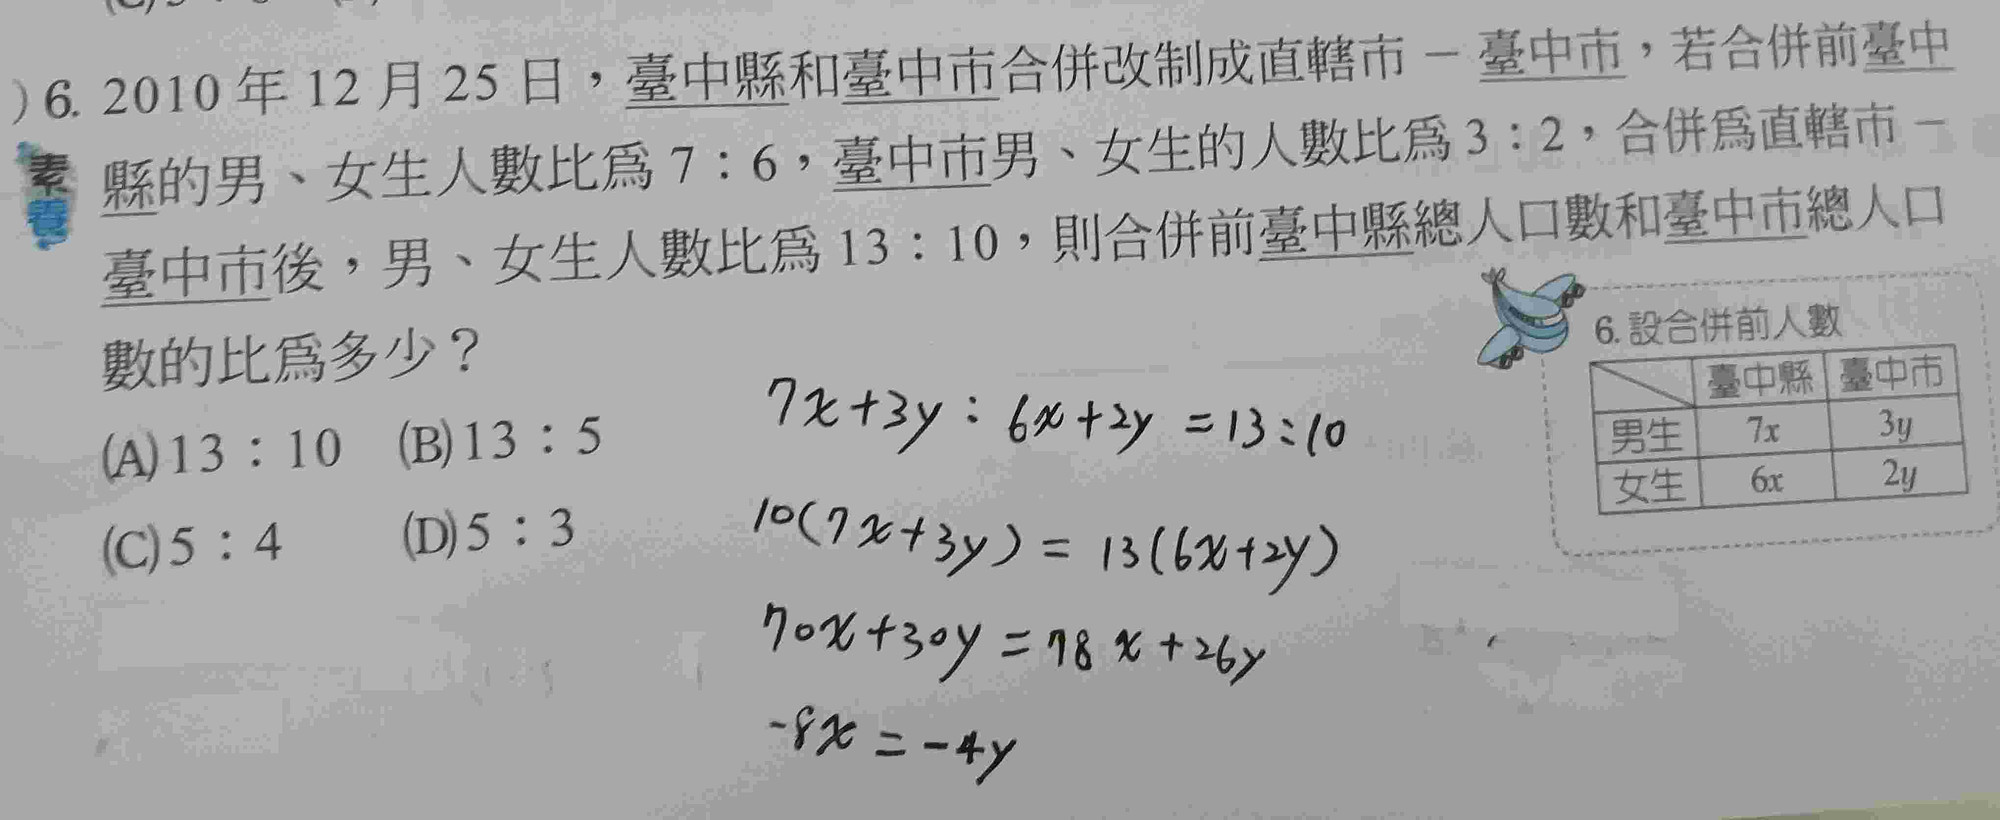 )6. 2010 年 12 月 25 日，臺中縣和臺中市合併改制成直轄市－臺中市，若合併前臺中
素養
縣的男、女生人數比為 7：6，臺中市男、女生的人數比為 3：2，合併為直轄市－
臺中市後，男、女生人數比為 13：10，則合併前臺中縣總人口數和臺中市總人口
數的比為多少？
(A)13：10 (B)13：5
(C)5：4 (D)5：3
7x+3y：6x+2y =13：10
10(7x+3y) = 13(6x+2y)
70x+30y = 78x+26y
-8x = -4y
6. 設合併前人數
臺中縣 臺中市
男生 7x 3y
女生 6x 2y